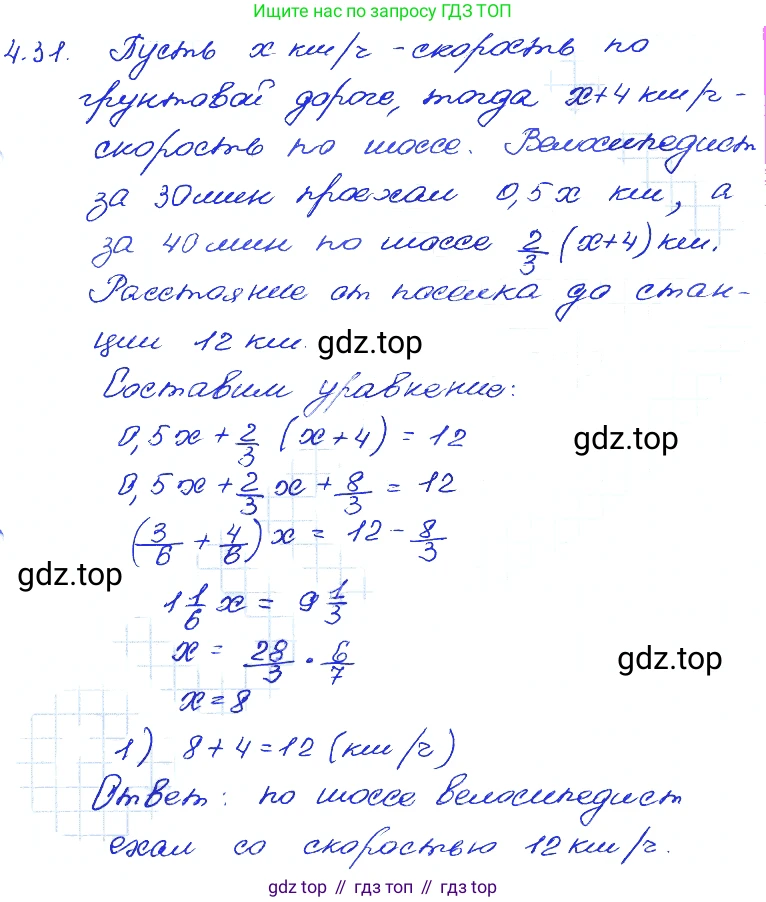 Ищите нас по запросу ГДЗ ТОП
4.31. Пусть x км/ч - скорость по
грунтовой дороге, тогда x+4 км/ч -
скорость по шоссе. Велосипедист
за 30 мин проехал 0,5x км, а
за 40 мин по шоссе 2/3 (x+4) км.
Расстояние от поселка до стан-
ции 12 км. gdz.top
Составим уравнение:
0,5x + 2/3 (x+4) = 12 gdz.top
0,5x + 2/3 x + 8/3 = 12
(3/6 + 4/6) x = 12 - 8/3
gdz.top
1 1/6 x = 9 1/3
x = 28/3 · 6/7 gdz.top
x = 8
1) 8 + 4 = 12 (км/ч)
Ответ: по шоссе велосипедист
ехал со скоростью 12 км/ч.
gdz top // гдз топ // гдз top